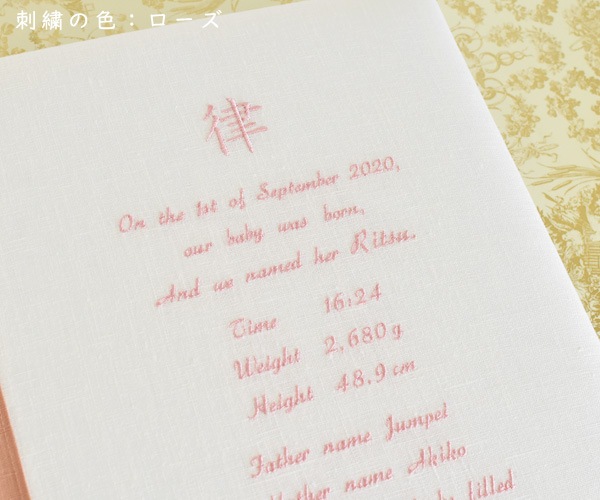 刺繍の色：ローズ
律
On the 1st of September 2020,
our baby was born,
And we named her Ritsu.
Time 16:24
Weight 2,680 g
Height 48.9 cm
Father name Jumpei
Mother name Akiko
be filled